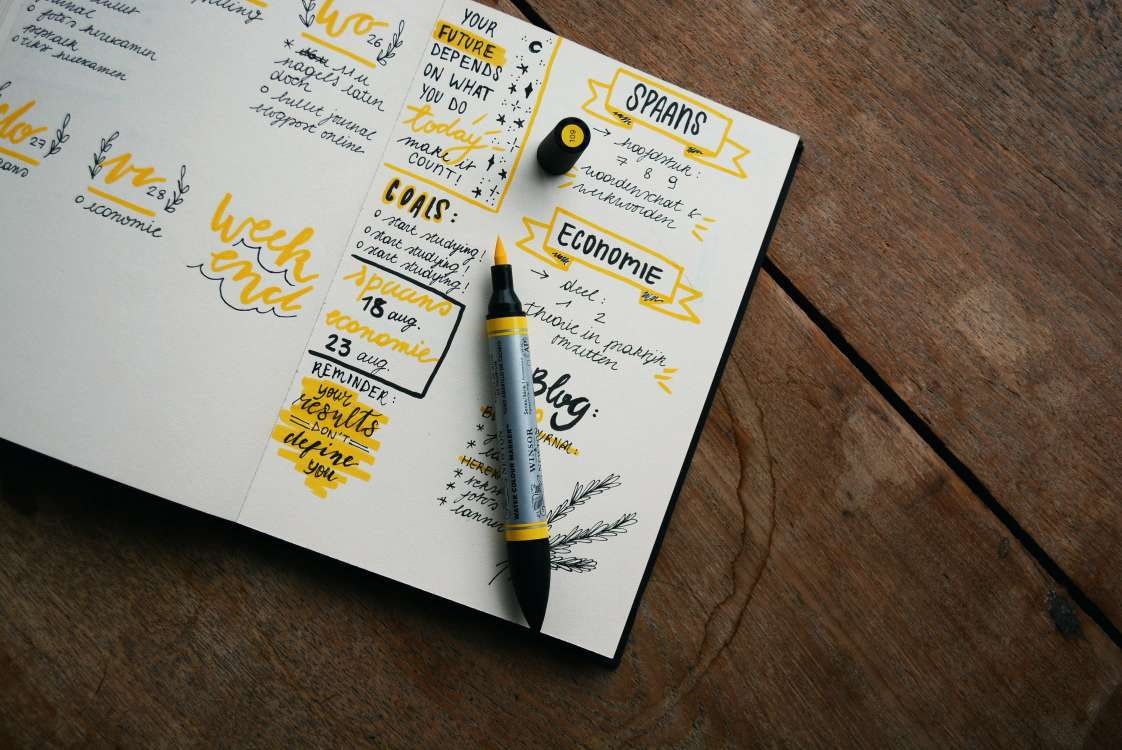 bullet journal
o foto's huiskamen
o vikv huiskamen
Wo
26
* 11u
nagels laten
doen
o bullet journal
blogpost online
do
27
vr
28
o economie
week
end
YOUR
FUTURE
DEPENDS
ON WHAT
YOU DO
today
make it
COUNT!
GOALS:
o start studying!
o start studying!
o start studying!
spaans
18 aug.
economie
23 aug.
REMINDER:
your
results
DON'T
define
you
109
SPAANS
→ hoofdstuk:
7 8 9
woordenschat &
werkwoorden
ECONOMIE
→ deel:
1 2
theorie in praktijk
omzetten
Blog:
WINSOR
WATER COLOUR MARKER